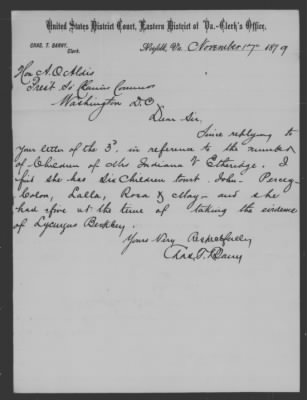 United States District Court, Eastern District of Va.-Clerk's Office,
CHAS. T. BARRY,
Clerk.
Norfolk, Va. November 17 1879
Hon A. O. Aldis
Prest So Claims Commrs
Washington D.C.
Dear Sir,
Since replying to
your letter of the 3d. in reference to the number
of Children of Mrs Indiana V Etheridge. I
find she has Six Children to wit. John - Percy -
Colon, Lalla, Rosa & May - and she
had five at the time of taking the evidence
of Lycurgus Berkley.
Yours Very Respectfully
Chas. T. Barry